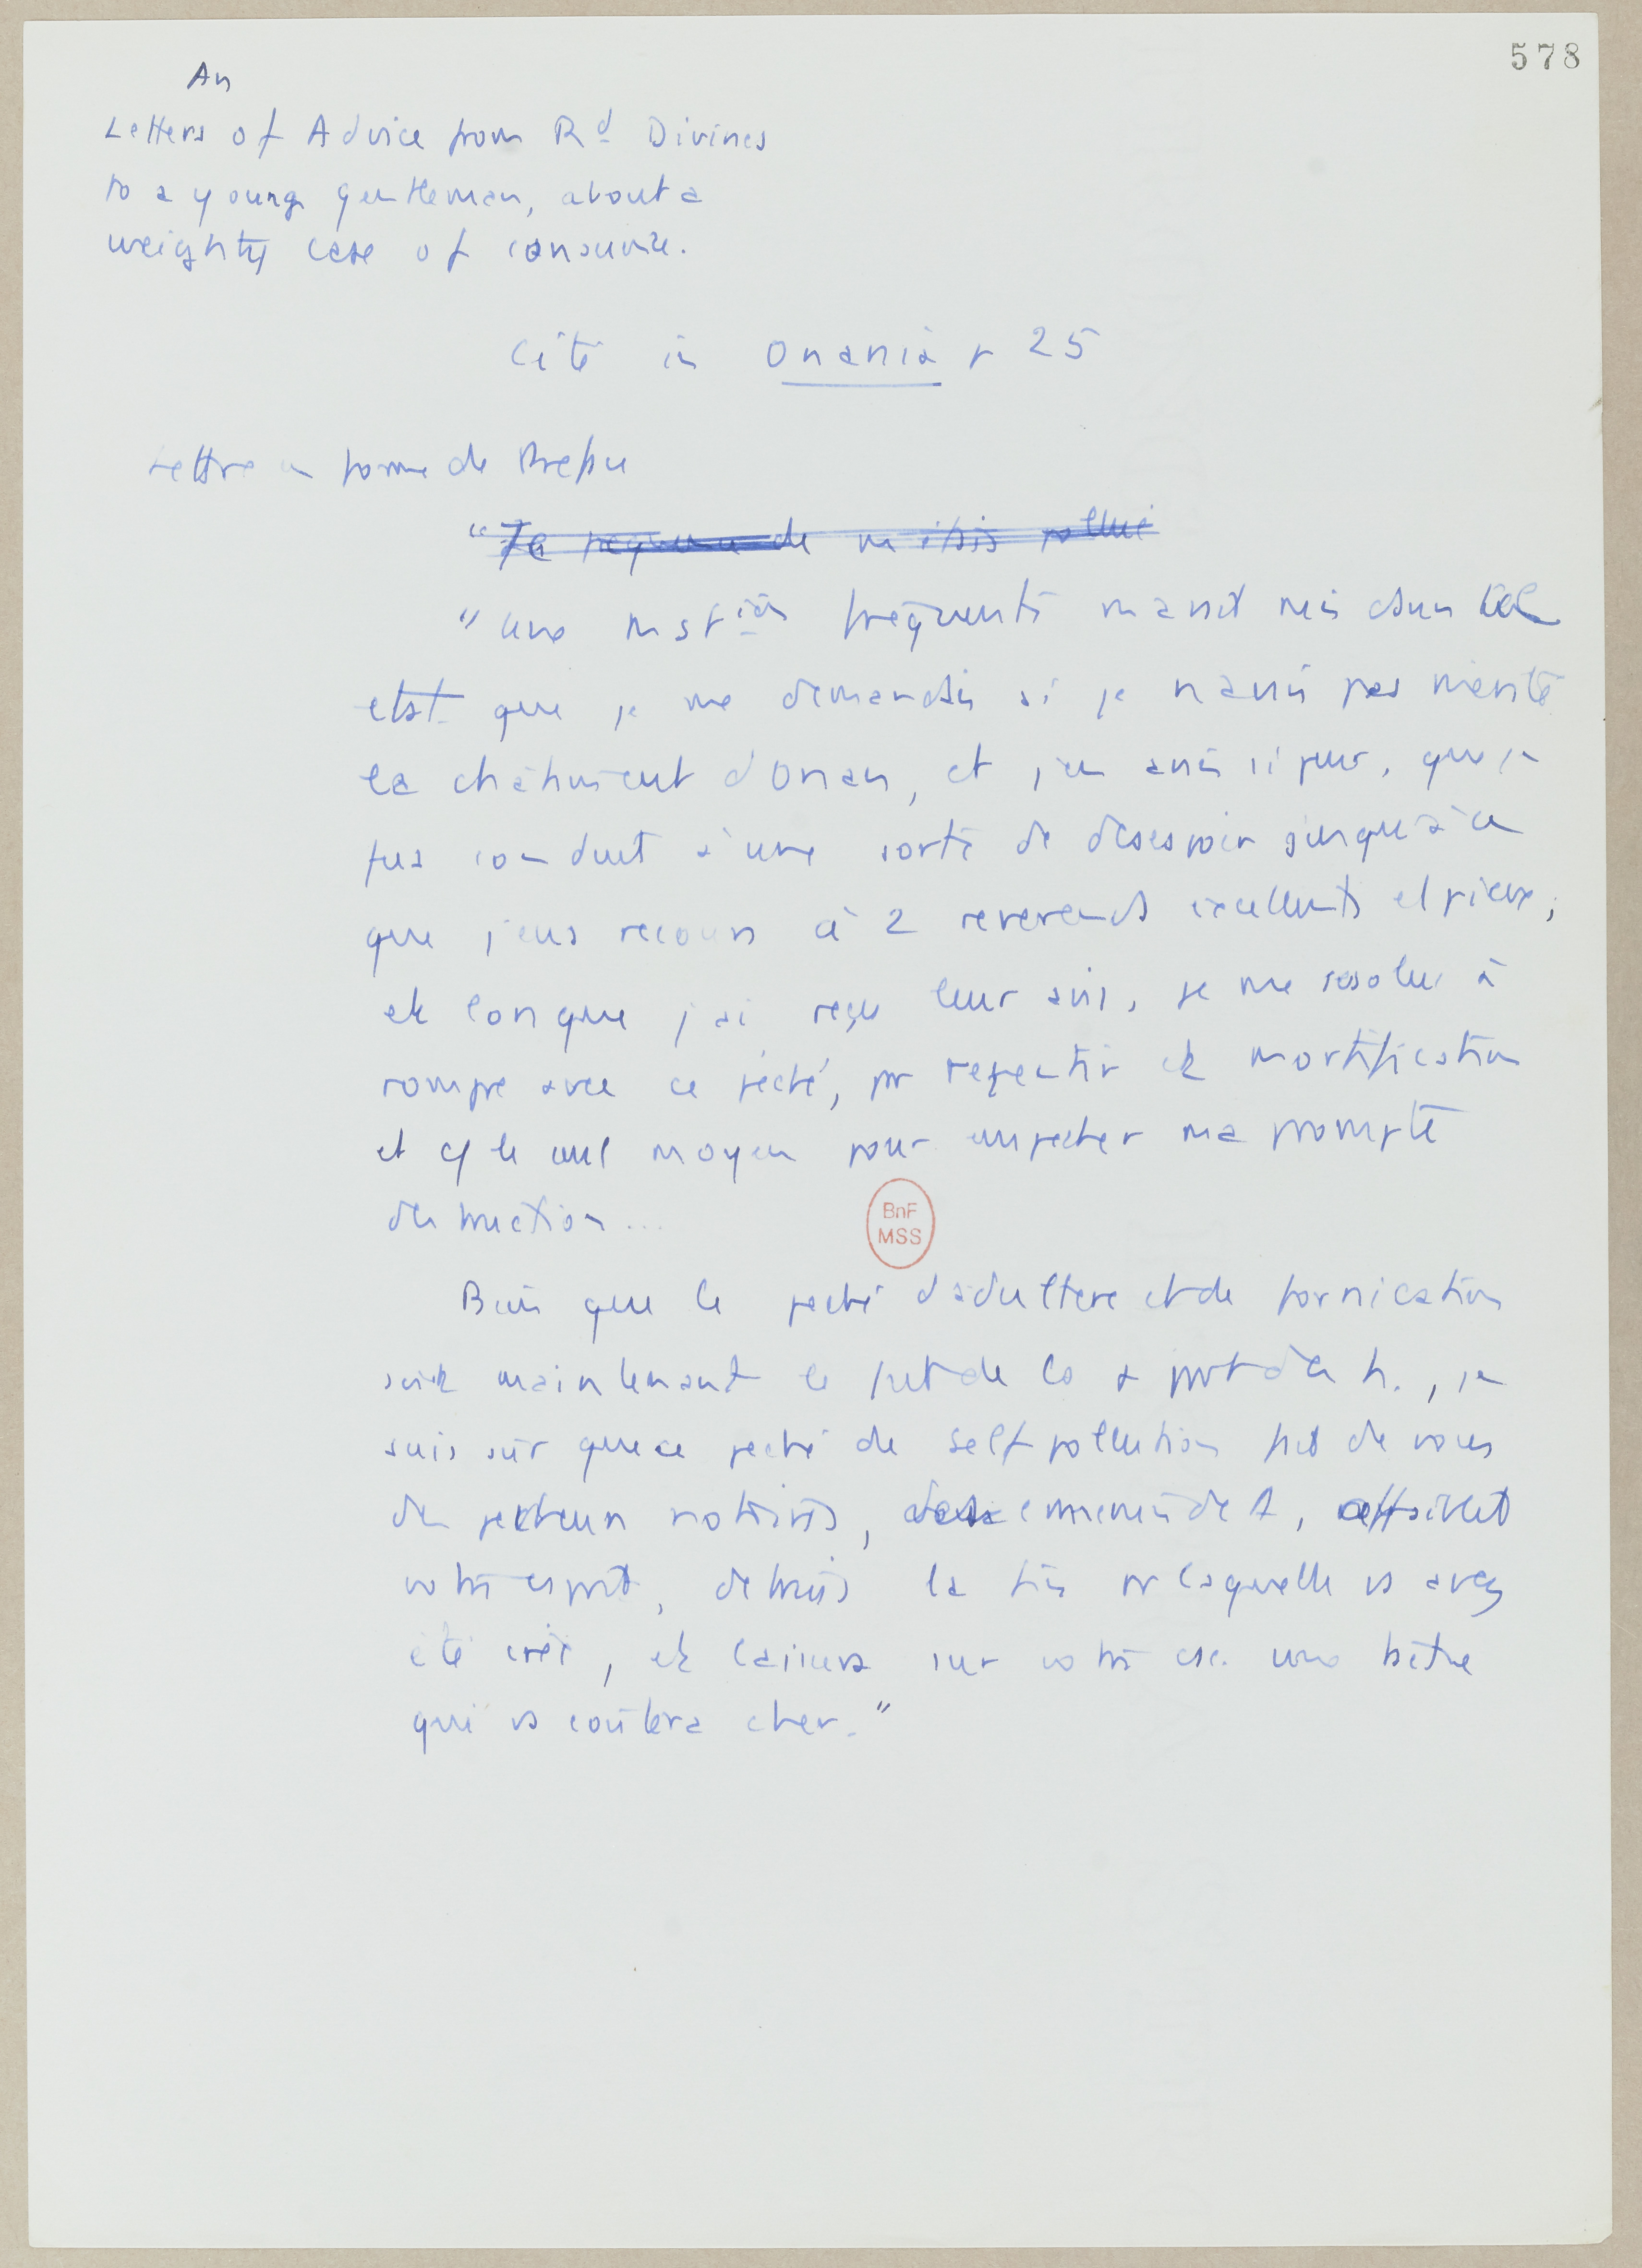 578
An
Letters of Advice from Rd Divines
to a young gentleman, about a
weighty case of conscience.
Cité in Onania p 25
Lettre en forme de Preface
"Je
"une mastion fréquente m'avait mis dans un tel
etat que je me demandais si je n'avais pas mérité
le châtiment d'Onan, et j'en avais si peur, que je
fus conduit à une sorte de désespoir jusqu'à ce
que j'eus recours à 2 reverends excellents et pieux;
et lorsque j'ai reçu leur avis, je me resolus à
rompre avec ce péché, pr repentir et mortification
et cf le seul moyen pour empecher ma prompte
destruction...
Bien que le peché d'adultere et de fornication
soit maintenant le fait de la + part des h., je
suis sûr que ce peché de self pollution fait de vous
des pecheurs notoires, ennemis de , affaiblit
votre esprit, detruis la fin pr laquelle vs avez
été créé, et laissera sur votre csc. une tâche
qui vs coûtera cher."
BnF
MSS